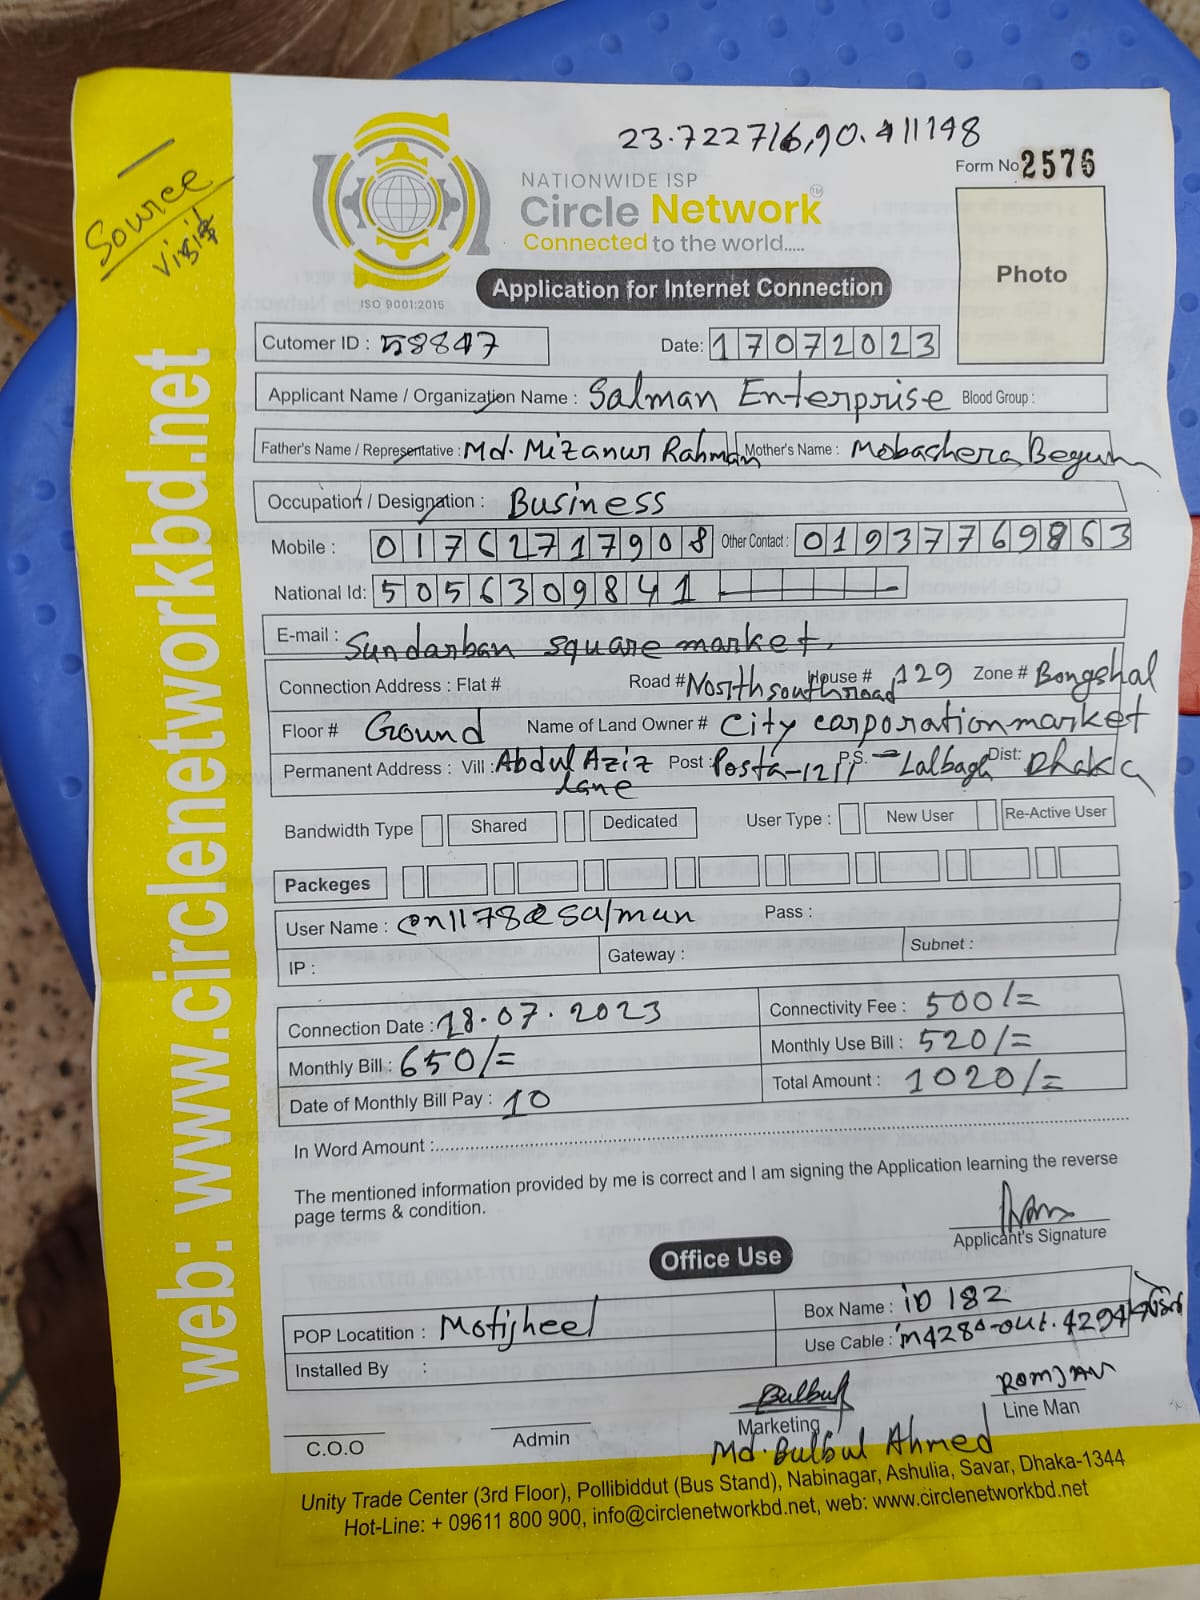 23.722716,90.411148
Source
Visit
Form No 2576
NATIONWIDE ISP
Circle Network™
Connected to the world.....
ISO 9001:2015
Application for Internet Connection
Photo
Cutomer ID : 58847
Date: 17072023
Applicant Name / Organization Name : Salman Enterprise Blood Group :
Father's Name / Representative : Md. Mizanur Rahman Mother's Name : Mobashera Begum
Occupation / Designation : Business
Mobile : 01762717908 Other Contact : 01937769863
National Id: 5056309841
E-mail : Sundarban square market,
Connection Address : Flat # Road # North south road House # 129 Zone # Bongshal
Floor # Ground Name of Land Owner # City carporation market
Permanent Address : Vill : Abdul Aziz lane Post : Posta-1211 P.S. - Lalbagh Dist: Dhaka
Bandwidth Type Shared Dedicated User Type : New User Re-Active User
Packeges
User Name : cn1178@salman Pass :
IP : Gateway : Subnet :
Connection Date : 18.07.2023 Connectivity Fee : 500/=
Monthly Bill : 650/= Monthly Use Bill : 520/=
Date of Monthly Bill Pay : 10 Total Amount : 1020/=
In Word Amount :
The mentioned information provided by me is correct and I am signing the Application learning the reverse
page terms & condition.
Applicant's Signature
Office Use
POP Locatition : Motijheel Box Name : iD 182
Installed By : Use Cable : in4280-out.4294
Bulbul ROMJAN
C.O.O Admin Marketing Line Man
Md. Bulbul Ahmed
Unity Trade Center (3rd Floor), Pollibiddut (Bus Stand), Nabinagar, Ashulia, Savar, Dhaka-1344
Hot-Line: + 09611 800 900, info@circlenetworkbd.net, web: www.circlenetworkbd.net
web: www.circlenetworkbd.net